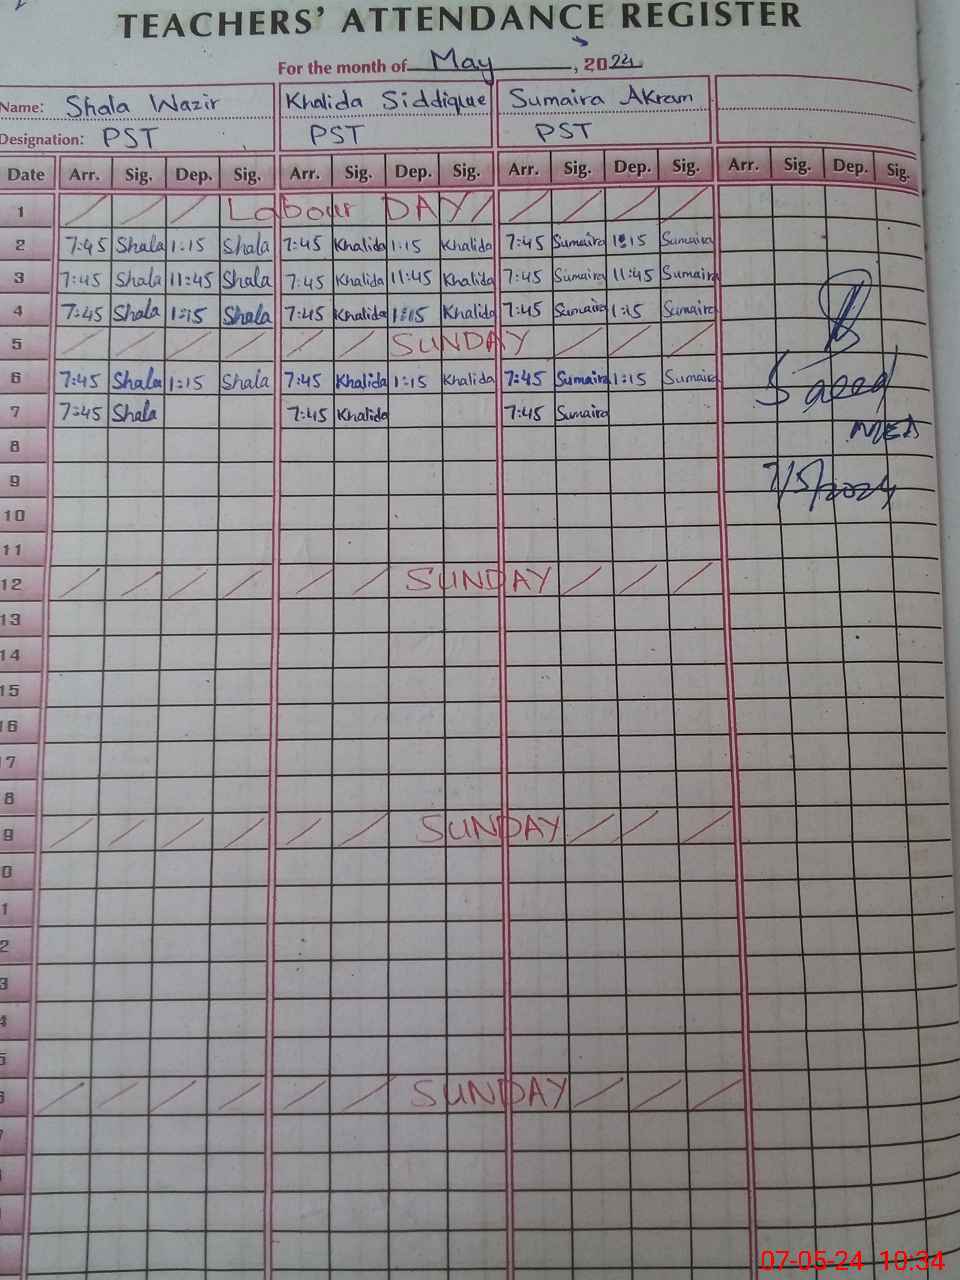 TEACHERS' ATTENDANCE REGISTER
For the month of May, 2024
Name: Shala Wazir Khalida Siddique Sumaira Akram
Designation: PST PST PST
Date Arr. Sig. Dep. Sig. Arr. Sig. Dep. Sig. Arr. Sig. Dep. Sig. Arr. Sig. Dep. Sig.
1 Labour DAY
2 7:45 Shala 1:15 Shala 7:45 Khalida 1:15 Khalida 7:45 Sumaira 1:15 Sumaira
3 7:45 Shala 11:45 Shala 7:45 Khalida 11:45 Khalida 7:45 Sumaira 11:45 Sumaira
4 7:45 Shala 1:15 Shala 7:45 Khalida 1:15 Khalida 7:45 Sumaira 1:15 Sumaira
5 SUNDAY
6 7:45 Shala 1:15 Shala 7:45 Khalida 1:15 Khalida 7:45 Sumaira 1:15 Sumaira
Saeed
7 7:45 Shala 7:45 Khalida 7:45 Sumaira
MEA
8
9
7/5/2024
10
11
12 SUNDAY
13
14
15
16
17
8
9 SUNDAY
0
1
2
3
4
5
6 SUNDAY
7
07-05-24 10:34